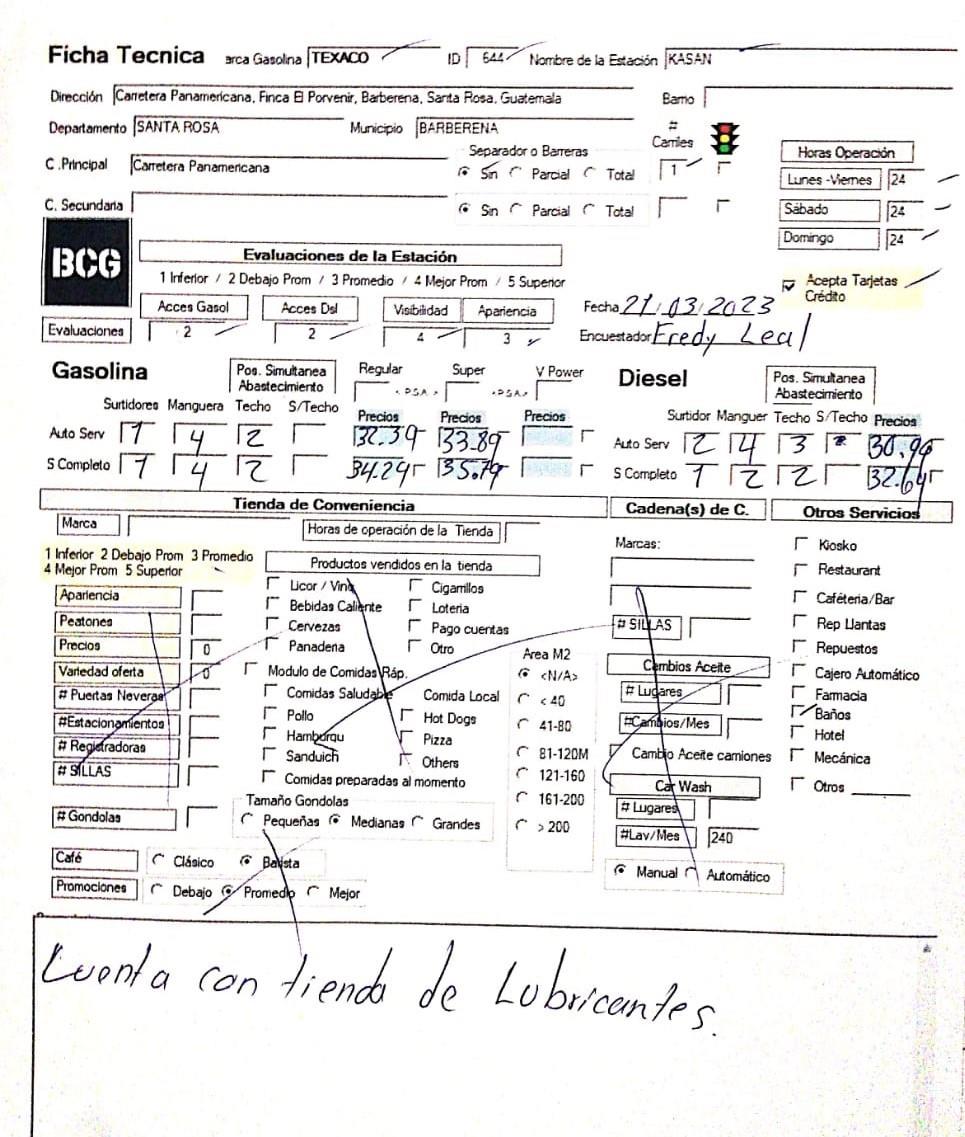 Ficha Tecnica arca Gasolina TEXACO ID 644 Nombre de la Estación KASAN
Dirección Carretera Panamericana, Finca El Porvenir, Barberena, Santa Rosa, Guatemala Barrio
Departamento SANTA ROSA Municipio BARBERENA # Carriles
C .Principal Carretera Panamericana Separador o Barreras Sin Parcial Total 1
C. Secundaria Sin Parcial Total
Horas Operación
Lunes -Viernes 24
Sábado 24
Domingo 24
BCG
Evaluaciones de la Estación
1 Inferior / 2 Debajo Prom / 3 Promedio / 4 Mejor Prom / 5 Superior
Acces Gasol Acces Dsl Visibilidad Apariencia
Evaluaciones 2 2 4 3
Acepta Tarjetas Crédito
Fecha 21/03/2023
Encuestador Fredy Leal
Gasolina
Pos. Simultanea Abastecimiento Regular Super V Power
<PSA> <PSA>
Surtidores Manguera Techo S/Techo Precios Precios Precios
Auto Serv 1 4 2 32.39 33.89
S Completo 1 4 2 34.29 35.79
Diesel
Pos. Simultanea Abastecimiento
Surtidor Manguer Techo S/Techo Precios
Auto Serv 2 4 3 30.99
S Completo 1 2 2 32.69
Tienda de Conveniencia
Marca Horas de operación de la Tienda
1 Inferior 2 Debajo Prom 3 Promedio
4 Mejor Prom 5 Superior
Apariencia
Peatones
Precios 0
Variedad oferta 0
# Puertas Neveras
#Estacionamientos
# Registradoras
# SILLAS
# Gondolas
Productos vendidos en la tienda
Licor / Vino Cigarrillos
Bebidas Caliente Loteria
Cervezas Pago cuentas
Panaderia Otro
Modulo de Comidas Ráp.
Comidas Saludable Comida Local
Pollo Hot Dogs
Hamburqu Pizza
Sanduich Others
Comidas preparadas al momento
Tamaño Gondolas
Pequeñas Medianas Grandes
Area M2
<N/A>
< 40
41-80
81-120M
121-160
161-200
> 200
Café Clásico Barista
Promociones Debajo Promedio Mejor
Cadena(s) de C.
Marcas:
# SILLAS
Cambios Aceite
# Lugares
#Cambios/Mes
Cambio Aceite camiones
Car Wash
# Lugares
#Lav/Mes 240
Manual Automático
Otros Servicios
Kiosko
Restaurant
Caféteria/Bar
Rep Llantas
Repuestos
Cajero Automático
Farmacia
Baños
Hotel
Mecánica
Otros
Cuenta con tienda de Lubricantes.